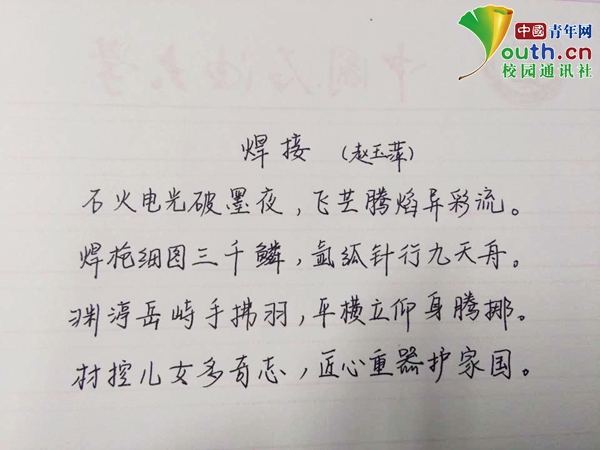 中國青年网
Youth.cn
校园通讯社
焊接 (赵玉萍)
石火电光破墨夜，飞芒腾焰异彩流。
焊枪细图三千鳞，氩弧针行九天舟。
渊渟岳峙手拂羽，平横立仰身腾挪。
材控儿女多奇志，匠心重器护家国。